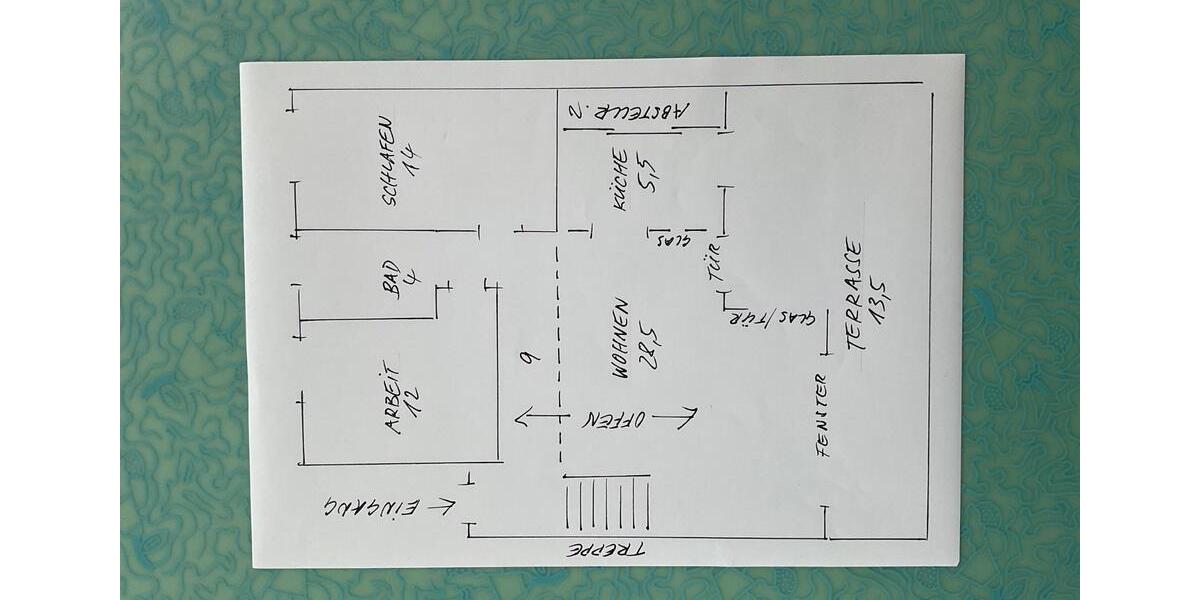 SCHLAFEN
14
ABSTELLR. 2
KÜCHE
5,5
GLAS
TÜR
BAD
4
GLAS/TÜR
TERRASSE
13,5
WOHNEN
28,5
9
ARBEIT
12
OFFEN
FENSTER
EINGANG
TREPPE